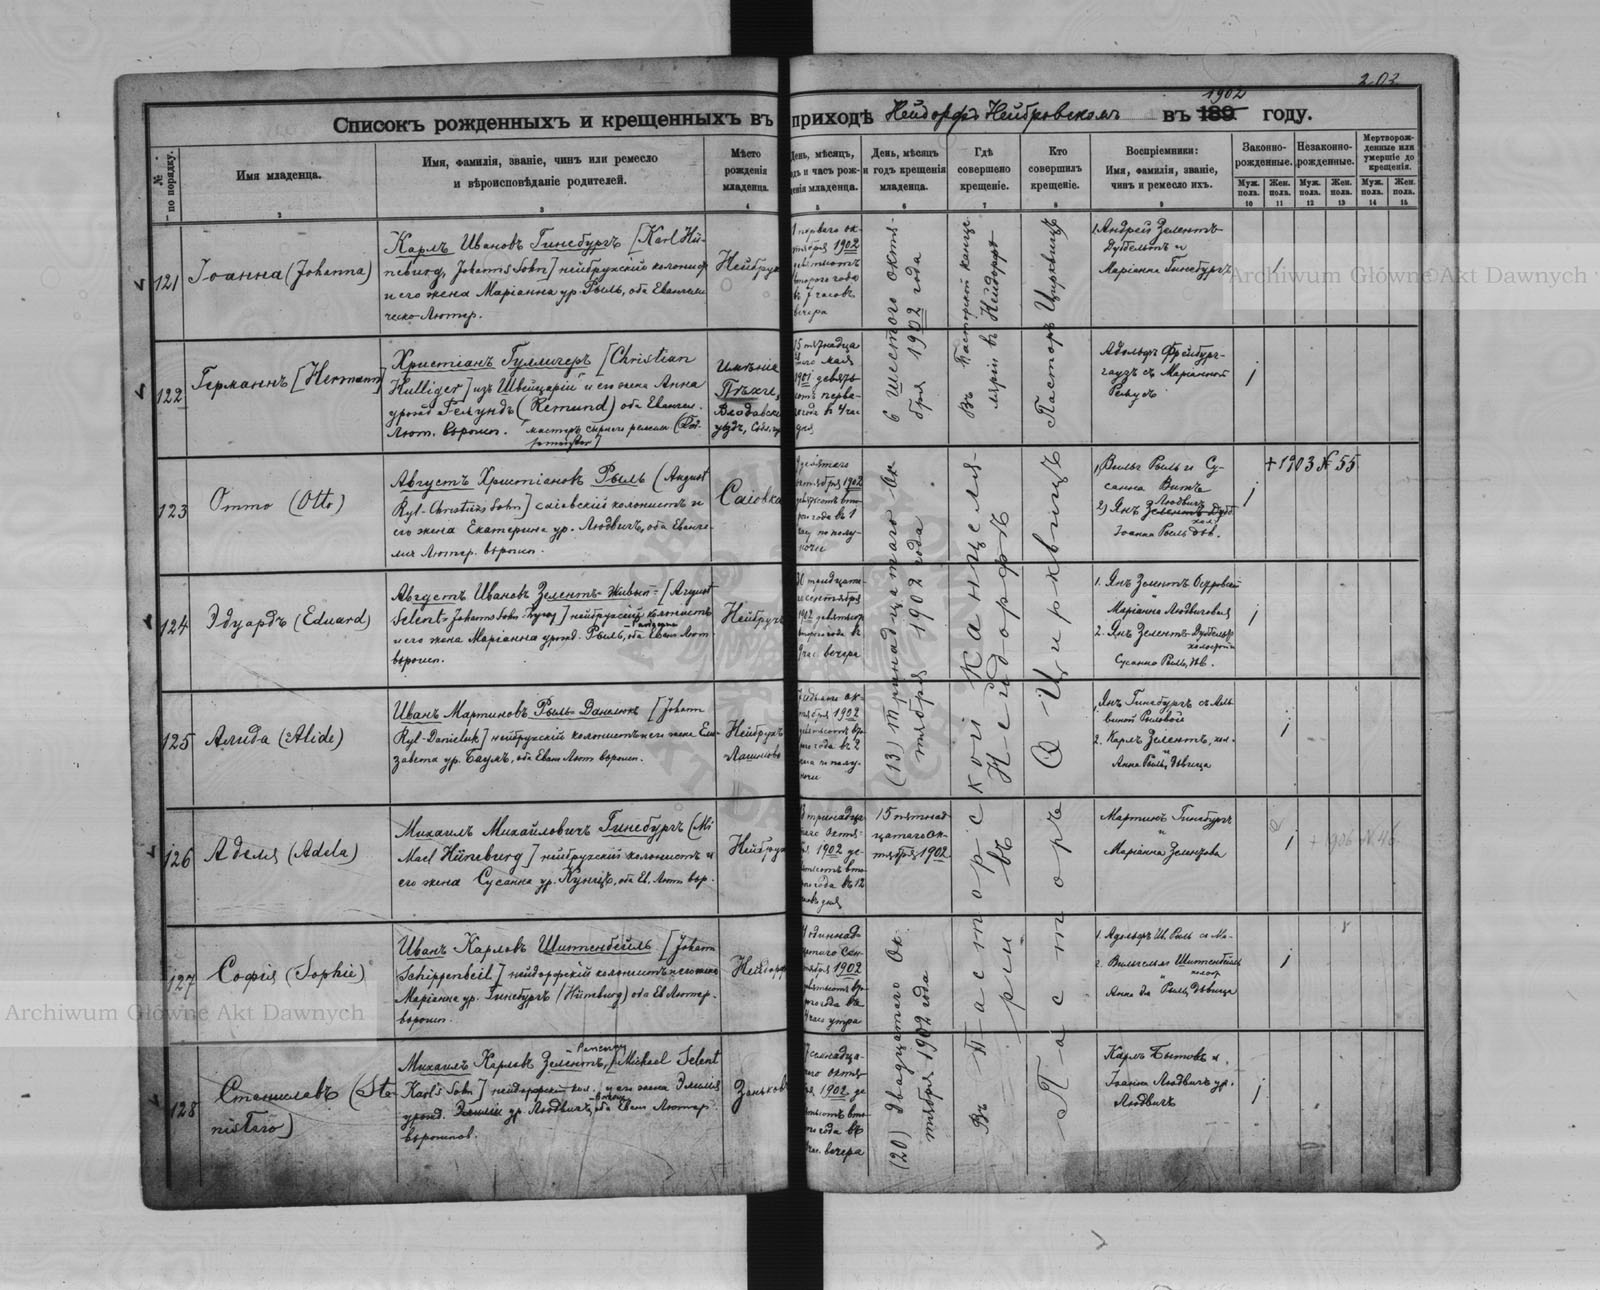 203
Списокъ рожденныхъ и крещенныхъ въ приходѣ Нейдорфъ Нейбровскомъ въ 189 1902 году.
№ по порядку.
Имя младенца.
Имя, фамилія, званіе, чинъ или ремесло
и вѣроисповѣданіе родителей.
Мѣсто
рожденія
младенца.
День, мѣсяцъ,
годъ и часъ рож-
денія младенца.
День, мѣсяцъ
и годъ крещенія
младенца.
Гдѣ
совершено
крещеніе.
Кто
совершилъ
крещеніе.
Воспріемники:
Имя, фамилія, званіе,
чинъ и ремесло ихъ.
Законно-
рожденные.
Незаконно-
рожденные.
Мертворож-
денные или
умершіе до
крещенія.
Муж. пола.
Жен. пола.
Муж. пола.
Жен. пола.
Муж. пола.
Жен. пола.
2 3 4 5 6 7 8 9 10 11 12 13 14 15
121
Іоанна (Johanna)
Карлъ Ивановъ Гинебургъ [Karl Hü-
neburg, Johanns Sohn] нейбружскій колонистъ
и его жена Маріанна ур. Рыль, оба Евангели
ческо-Лютер.
Нейбружъ
1 перваго ок-
тября 1902
девятьсотъ
второго года
въ 7 часовъ
вечера
6 Шестого октя-
бря 1902 года
Въ Пасторской канце-
ляріи въ Нейдорфѣ
Пасторъ Цирквицъ
1. Андрей Зелентъ
Дуббельтъ и
Маріанна Гинебургъ
1
122
Германнъ [Hermann]
Христіанъ Гуллигеръ [Christian
Hulliger] изъ Швейцаріи и его жена Анна
урожд Ремундъ (Remund) оба Евангел.
Лют. вѣроисп.
Имѣніе
Владавск
уѣзд.
15 пятнадца
таго мая
1901 девять
сотъ перва-
го года въ 4 час
дня
Адольфъ Фрейбург-
гаузъ съ Маріанной
1
123
Отто (Otto)
Августъ Христіановъ Рыль (August
Ryl-Christians Sohn] саіовскій колонистъ и
его жена Екатерина ур. Людвигъ, оба Еванге-
лич Лютер. вѣроисп.
Саіовка
октября 1902
девятьсотъ вто-
рого года въ 1
часъ по полу-
ночи
(13) Тринадцатаго Ок-
тября 1902 года
Въ Пасторской Канцеля-
ріи въ Нейдорфѣ
Пасторъ О. Цирквицъ
1, Вильг Рыль и Су-
санна Витъ
2) Янъ Людвигъ
Іоанна Рыль дѣв.
1
+ 1903 № 55
124
Эдуардъ (Eduard)
Августъ Ивановъ Зелентъ-Живып= [August
Selent Johanns Sohn] нейбружскій колонистъ
и его жена Маріанна урожд. Рыль, оба Еванг Лют.
вѣроисп.
Нейбружъ
30 тридцата-
го сентября
1902 девятьсот
второго года въ
9 час. вечера
1. Янъ Зелентъ Островскій
и
Маріанна Людвиговая
2. Янъ Зелентъ-Дуббельтъ
холостой и
Сусанна Рыль, дѣв.
1
125
Алида (Alide)
Иванъ Мартиновъ Рыль-Данелюкъ [Johann
Ryl-Danieluk] нейбружскій колонистъ и его жена Ели-
завета ур. Баумъ, оба Еванг Лют вѣроисп.
Нейбружъ
октября 1902
девятьсотъ вто-
рого года въ 2
часа по полу-
ночи
1, Янъ Гинебургъ съ Аль-
виной Рыловой
2. Карлъ Зелентъ, хол.
и
Анна Рыль, дѣвица
1
126
Аделя (Adela)
Михаилъ Михайловичъ Гинебургъ (Mi
chael Hüneburg] нейбружскій колонистъ и
его жена Сусанна ур. Кунцъ, оба Ев. Лют вѣр.
Нейбружъ
13 тринадца
таго октя-
бря 1902 де-
вятьсотъ вто-
рого года въ 12
часовъ дня
15 пятнад
цатаго ок-
тября 1902
Мартинъ Гинебургъ
и
Маріанна Зелентова
1
+ 1906 № 46.
127
Софія (Sophie)
Иванъ Карловъ Шиппенбейль [Johann
Schippenbeil] нейдорфскій колонистъ и его жена
Маріанна ур. Гинебургъ (Hüneburg) оба Ев Лютер.
вѣроисп.
Нейдорфъ
11 одиннад-
цатаго Сен-
тября 1902
девятьсотъ вто-
рого года въ
4 часа утра
(20) Двадцатаго Ок-
тября 1902 года
1. Адольфъ Ив. Рыль съ Ма-
2. Вильгельмъ Шиппенбейль
холост
и
Рыль дѣвица
1
128
Станиславъ (Sta-
nislaw)
Михаилъ Карловъ Зелентъ, [Michael Selent
Karl's Sohn] нейдорфскій кол. и его жена Эмилія
урожд. Эмилія ур. Людвигъ, оба Еванг Лютер.
вѣроисповѣд.
Заньковъ
17 семнадца-
таго октя-
бря 1902 де-
вятьсотъ вто-
рого года въ
час. вечера
Карлъ Бытовъ и
Іоанна Людвигъ ур.
Людвигъ
1
Archiwum Główne Akt Dawnych
Archiwum Główne Akt Dawnych